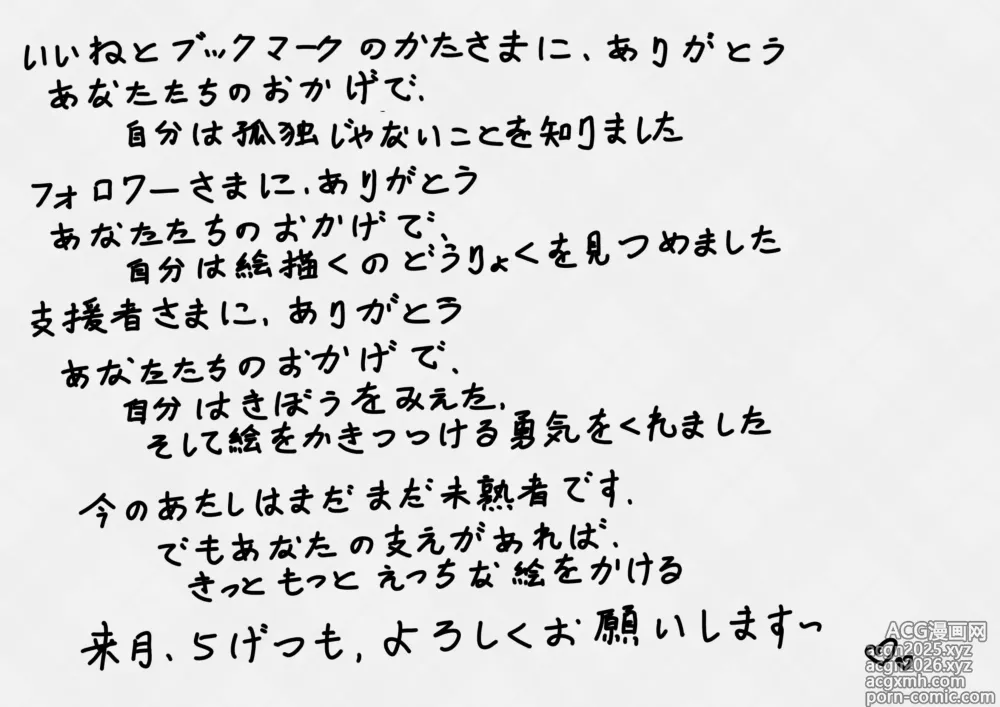 いいねとブックマークのかたさまに、ありがとう
あなたたちのおかげで、
自分は孤独じゃないことを知りました
フォロワーさまに、ありがとう
あなたたちのおかげで、
自分は絵描くのどうりょくを見つめました
支援者さまに、ありがとう
あなたたちのおかげで、
自分はきぼうをみえた、
そして絵をかきつっける勇気をくれました
今のあたしはまだまだ未熟者です、
でもあなたの支えがあれば、
きっともっとえっちな絵をかける
来月、5げつも、よろしくお願いします~
ACG漫画网
acgn2025.xyz
acgn2026.xyz
acgxmh.com
porn-comic.com